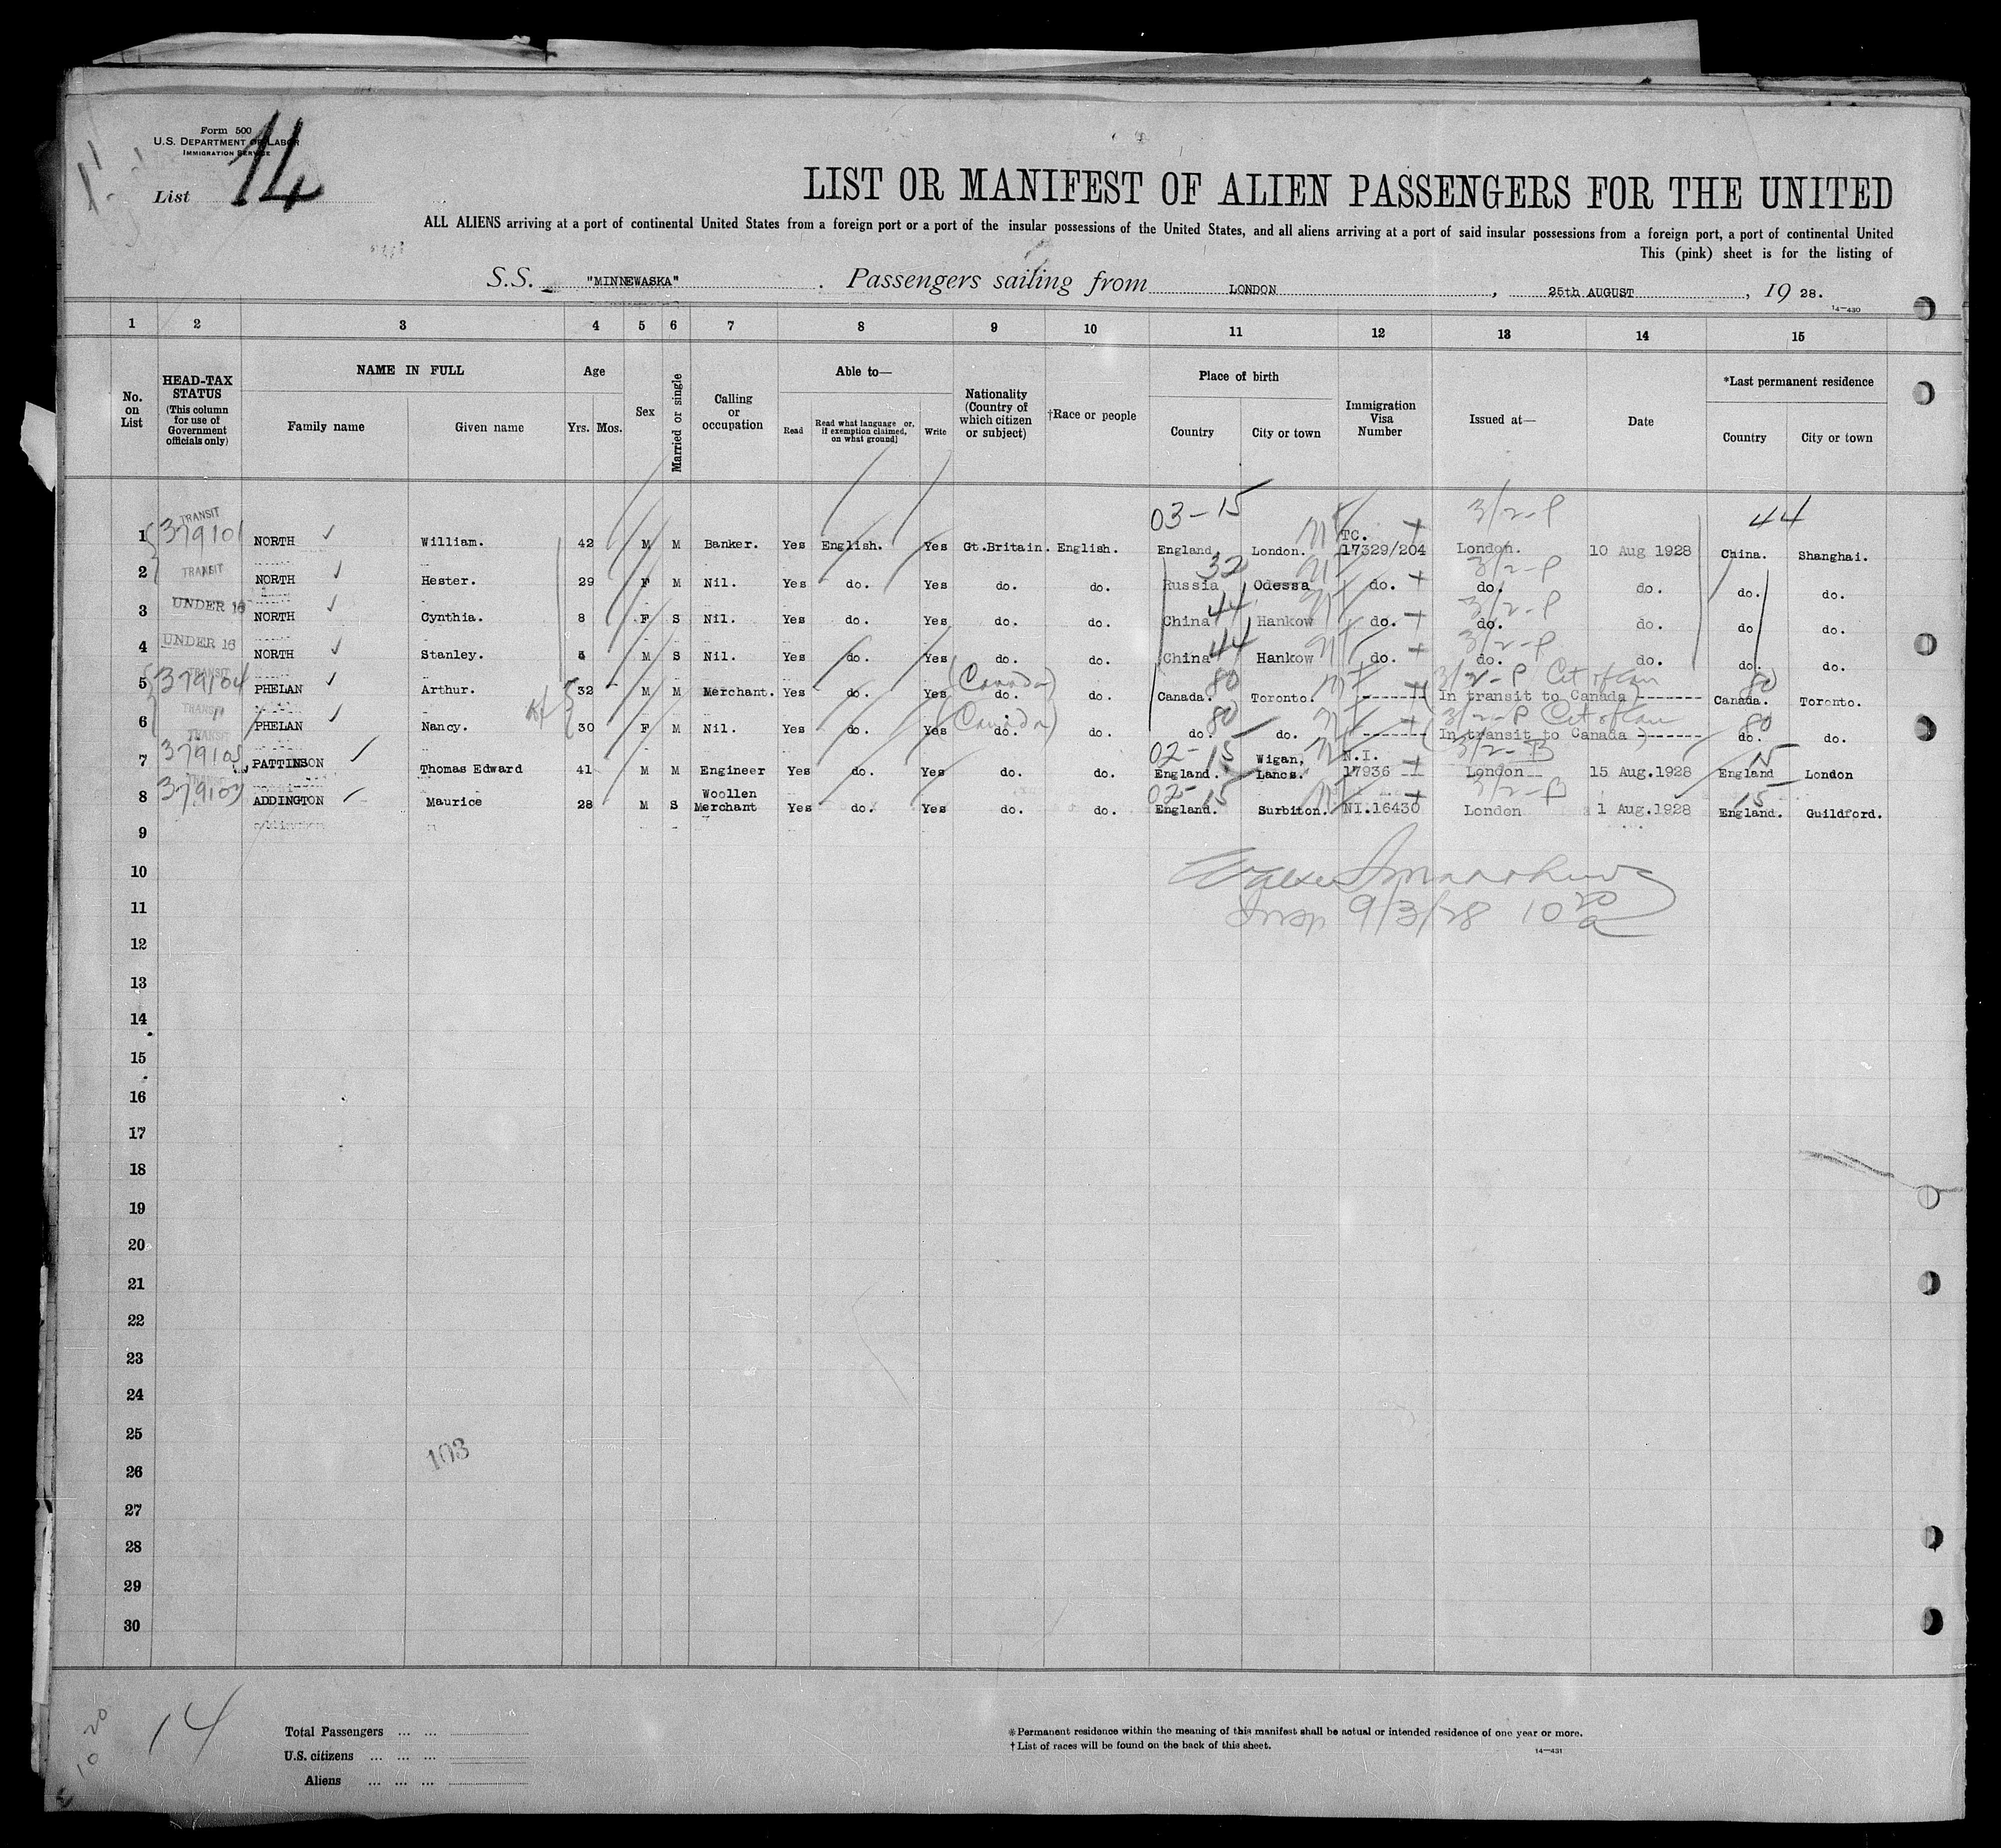 Form 500
U.S. DEPARTMENT OF LABOR
IMMIGRATION SERVICE
List 14
LIST OR MANIFEST OF ALIEN PASSENGERS FOR THE UNITED
ALL ALIENS arriving at a port of continental United States from a foreign port or a port of the insular possessions of the United States, and all aliens arriving at a port of said insular possessions from a foreign port, a port of continental United
This (pink) sheet is for the listing of
S.S. "MINNEWASKA" . Passengers sailing from LONDON , 25th AUGUST , 19 28.
14—430
1 2 3 4 5 6 7 8 9 10 11 12 13 14 15
No. on List
HEAD-TAX STATUS
(This column for use of Government officials only)
NAME IN FULL
Family name
Given name
Age
Yrs. Mos.
Sex
Married or single
Calling or occupation
Able to—
Read
Read what language or, if exemption claimed, on what ground]
Write
Nationality (Country of which citizen or subject)
†Race or people
Place of birth
Country
City or town
Immigration Visa Number
Issued at—
Date
*Last permanent residence
Country
City or town
03-15 3/2-P 44
TRANSIT
1 379101 NORTH William. 42 M M Banker. Yes English. Yes Gt.Britain. English. England. London. TC. 17329/204 London. 10 Aug 1928 China. Shanghai.
32 3/2-P
2 TRANSIT NORTH Hester. 29 F M Nil. Yes do. Yes do. do. Russia Odessa do. do. do. do. do.
44 3/2-P
3 UNDER 16 NORTH Cynthia. 8 F S Nil. Yes do. Yes do. do. China Hankow do. do. do. do do.
44 3/2-P
4 UNDER 16 NORTH Stanley. M S Nil. Yes do. Yes do. do. China Hankow do. do. do. do. do.
TRANSIT (Canada) 80 3/2-P 80
5 379104 PHELAN Arthur. 32 M M Merchant. Yes do. Yes do. do. Canada. Toronto. ------- In transit to Canada ------- Canada. Toronto.
TRANSIT (Canada) 80 3/2-P 80
6 PHELAN Nancy. 30 F M Nil. Yes do. Yes do. do. do. do. ------- In transit to Canada ------- do. do.
TRANSIT 02-15 3/2-B 15
7 379105 PATTINSON Thomas Edward 41 M M Engineer Yes do. Yes do. do. England. Wigan, Lancs. N.I. 17936 London 15 Aug.1928 England London
TRANSIT 02-15 3/2-B 15
8 379103 ADDINGTON Maurice 28 M S Woollen Merchant Yes do. Yes do. do. England. Surbiton. NI.16430 London 1 Aug.1928 England. Guildford.
9
10
11 Insp 9/3/28 10 20 a
12
13
14
15
16
17
18
19
20
21
22
23
24
25
103
26
27
28
29
30
10 20
14
Total Passengers ... ...
U.S. citizens ... ... ...
Aliens ... ... ...
*Permanent residence within the meaning of this manifest shall be actual or intended residence of one year or more.
†List of races will be found on the back of this sheet.
14—431